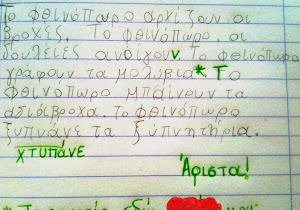 Το φθινόπωρο αρχίζουν οι
βροχές. Το φθινόπωρο οι
δουλειές ανοίγουν. Το φθινόπωρο
γράφουν τα μολύβια* Το
φθινόπωρο μπαίνουν τα
αδιάβροχα. Το φθινόπωρο
ξυπνάνε τα ξυπνητήρια.
χτυπάνε
Άριστα!